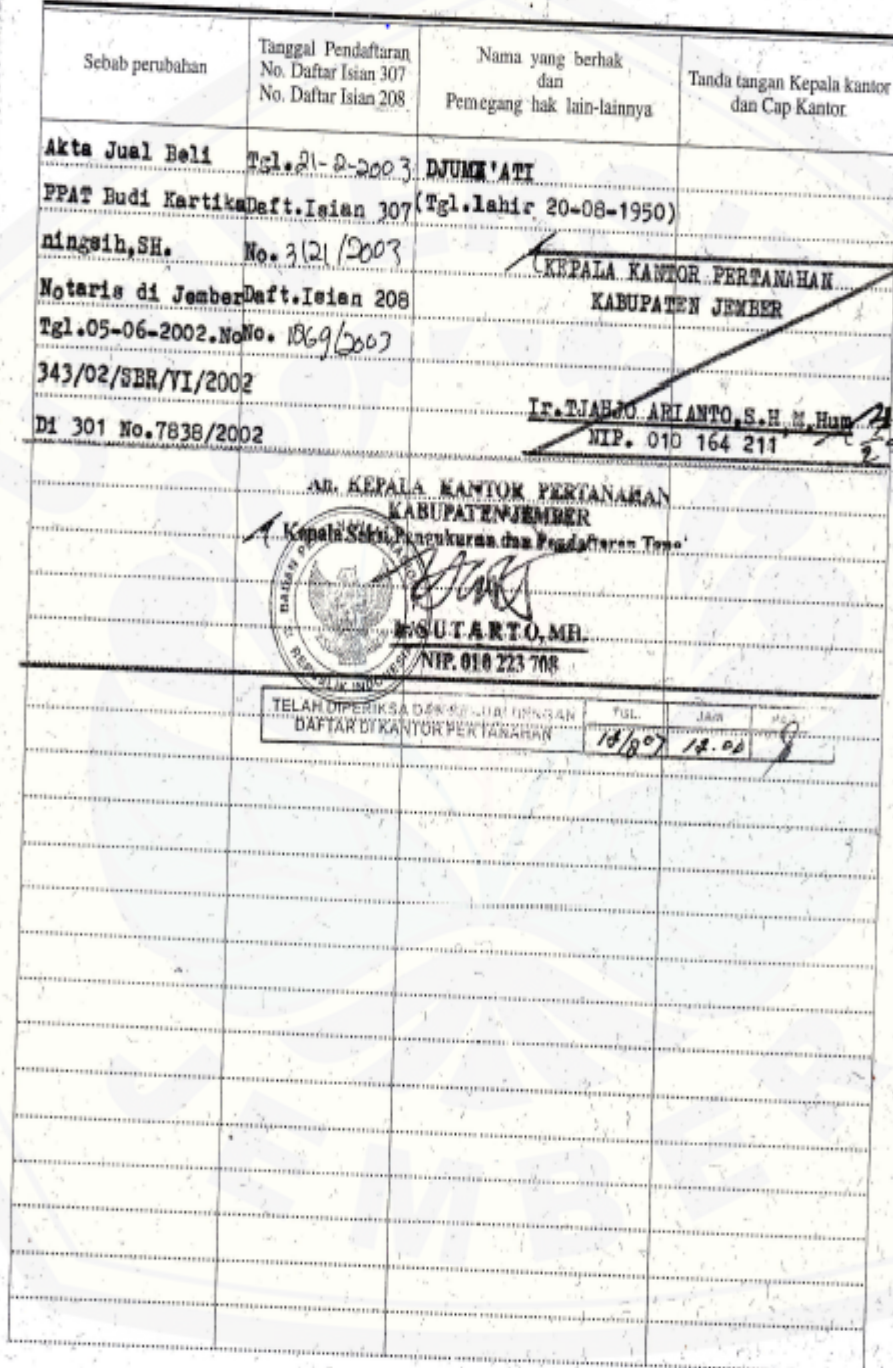 Sebab perubahan
Tanggal Pendaftaran
No. Daftar Isian 307
No. Daftar Isian 208
Nama yang berhak
dan
Pemegang hak lain-lainnya
Tanda tangan Kepala kantor
dan Cap Kantor
Akta Jual Beli
PPAT Budi Kartika
ningsih,SH.
Notaris di Jember
Tgl.05-06-2002.No
343/02/SBR/VI/2002
Di 301 No.7838/2002
Tgl. 21-2-2003
Daft.Isian 307
No. 3121/2003
Daft.Isian 208
No. 1869/2003
DJUMA'ATI
(Tgl.lahir 20-08-1950)
KEPALA KANTOR PERTANAHAN
KABUPATEN JEMBER
Ir.TJAHJO ARIANTO,S.H,M,Hum
NIP. 010 164 211
An. KEPALA KANTOR PERTANAHAN
KABUPATEN JEMBER
Kepala Seksi Pengukuran dan Pendaftaran Tana
SUTARTO, MH.
NIP. 010 223 708
BADAN
REPUBLIK INDONESIA
TELAH DIPERIKSA DAN SESUAI DENGAN
DAFTAR DI KANTOR PERTANAHAN
TGL.
JAM
JEMBER